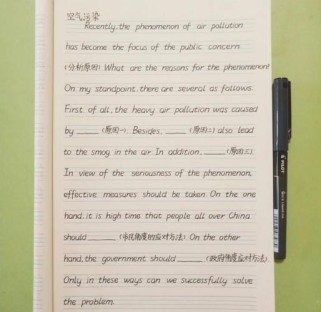 空气污染
Recently, the phenomenon of air pollution
has become the focus of the public concern.
(分析原因) What are the reasons for the phenomenon?
On my standpoint, there are several as follows.
First of all, the heavy air pollution was caused
by _____ (原因一). Besides, _____ (原因二) also lead
to the smog in the air. In addition, _____ (原因三).
In view of the seriousness of the phenomenon,
effective measures should be taken. On the one
hand, it is high time that people all over China
should _____ (市民角度的应对方法). On the other
hand, the government should _____ (政府角度应对方法).
Only in these ways can we successfully solve
the problem.
PILOT